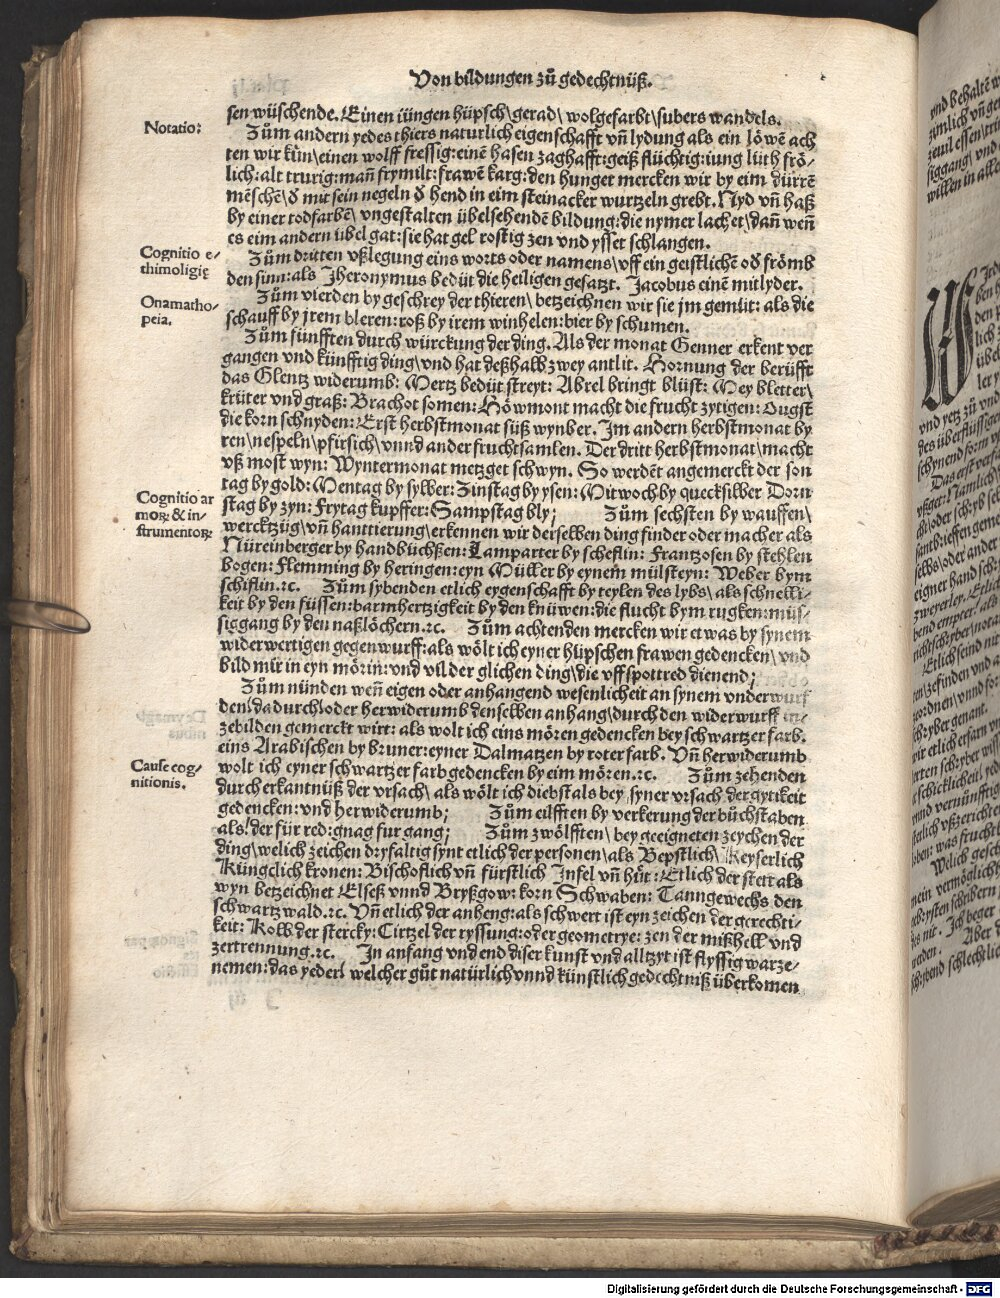 Von bildungen zů gedechtnüß.
sen wüschende. Einen iüngen hüpsch\gerad\ wolgefarbt\subers wandels.
Notatio:
Zům andern yedes thiers naturlich eigenschafft vñ lydung als ein lőwē ach
ten wir kün\einen wolff fressig:einē hasen zaghafft:geiß flüchtig:iung lüth frő⸗
lich:alt trurig:mañ frymilt:frawē karg:den hunger mercken wir by eim dürrē
mēschē\ð mit sein negeln ð hend in eim steinacker wurtzeln grebt. Nyd vñ haß
by einer todfarbē\ vngestalten übelsehendē bildung:die nymer lachet\dañ weñ
es eim andern übel gat:sie hat gel rostig zen vnd ysset schlangen.
Cognitio e⸗
thimoligię
Zům dritten vßlegung eins worts oder namens\vff ein geistlichē oð frőmb
den sinn:als Jheronymus bedüt die heiligen gesatzt. Jacobus einē mitlyder.
Onamatho⸗
peia.
Zům vierden by geschrey der thieren\ betzeichnen wir sie jm gemüt: als die
schauff by jrem bleren:roß by irem winhelen:bier by schumen.
Zům fünfften durch würckung der ding. Als der monat Genner erkent ver
gangen vnd künfftig ding\vnd hat deßhalb zwey antlit. Hornung der berüfft
das Glentz widerumb: Mertz bedüt streyt: Abrel bringt blüst: Mey bletter\
krüter vnd graß: Brachot somen: Hőwmont macht die frucht zytigen: Ougst
die korn schnyden: Erst herbstmonat süß wynber. Jm andern herbstmonat by
ren\nespeln\pfirsich\vnnd ander frucht samlen. Der dritt herbstmonat\macht
vß most wyn: Wyntermonat metzget schwyn. So werdēt angemerckt der son
tag by gold: Mentag by sylber: Zinstag by ysen: Mitwoch by quecksilber Dorn
Cognitio ar
moꝝ & in⸗
strumentoꝝ
stag by zyn: Frytag kupffer: Sampstag bly; Zům sechsten by wauffen\
wercktzüg\vñ hanttierung\erkennen wir derselben ding finder oder macher als
Nüreinberger by handbüchßen: Lamparter by scheflin: Frantzosen by stehlen
bogen: Flemming by heringen: eyn Müller by eynem mülsteyn: Weber bym
schiflin.ꝛc. Zům sybenden etlich eygenschafft by teylen des lybs\ als schnelli⸗
keit by den füssen:barmhertzigkeit by den knüwen:die flucht bym rugken:müs⸗
siggang by den naßlőchern.ꝛc. Zům achtenden mercken wir etwas by synem
widerwertigen gegenwurff:als wőlt ich eyner hüpschen frawen gedencken\ vnd
bild mir in eyn mőrin:vnd vil der glichen ding\die vff spottred dienend;
Zům nünden weñ eigen oder anhangend wesenlicheit an synem vnderwurf
den\da durch\oder herwiderumb denselben anhang\durch den widerwurff in⸗
zebilden gemerckt wirt: als wolt ich eins mőren gedencken bey schwartzer farb.
eins Arabischen by bruner:eyner Dalmatzen by roter farb. Vñ herwiderumb
Cause cog⸗
nitionis.
wolt ich eyner schwartzer farb gedencken by eim mőren.ꝛc. Zům zehenden
durch erkantnüß der vrsach\ als wőlt ich diebstals bey syner vrsach der gytikeit
gedencken: vnd herwiderumb; Zům eilfften by verkerung der bůchstaben
als\ der für red:gnag fur gang; Zům zwőlfften\ bey geeigneten zeychen der
ding\welich zeichen dryfaltig synt etlich der personen\als Bepstlich\ Keyserlich
Küngclich kronen: Bischoflich vñ fürstlich Jnfel vñ hůt: Etlich der stett als
wyn betzeichnet Elseß vnnd Bryßgow: korn Schwaben: Tanngewechs den
schwartzwald.ꝛc. Vñ etlich der anheng:als schwert ist eyn zeichen der gerechti⸗
keit: Kolb der stercky: Cirtzel der ryssung:oder geometrye: zen der mißhell vnd
zertrennung.ꝛc. Jn anfang vnd end diser kunst vnd alltzyt ist flyssig warze⸗
nemen:das yeder\ welcher gůt natürlich vnnd künstlich gedechtniß überkomen
Digitalisierung gefördert durch die Deutsche Forschungsgemeinschaft - DFG